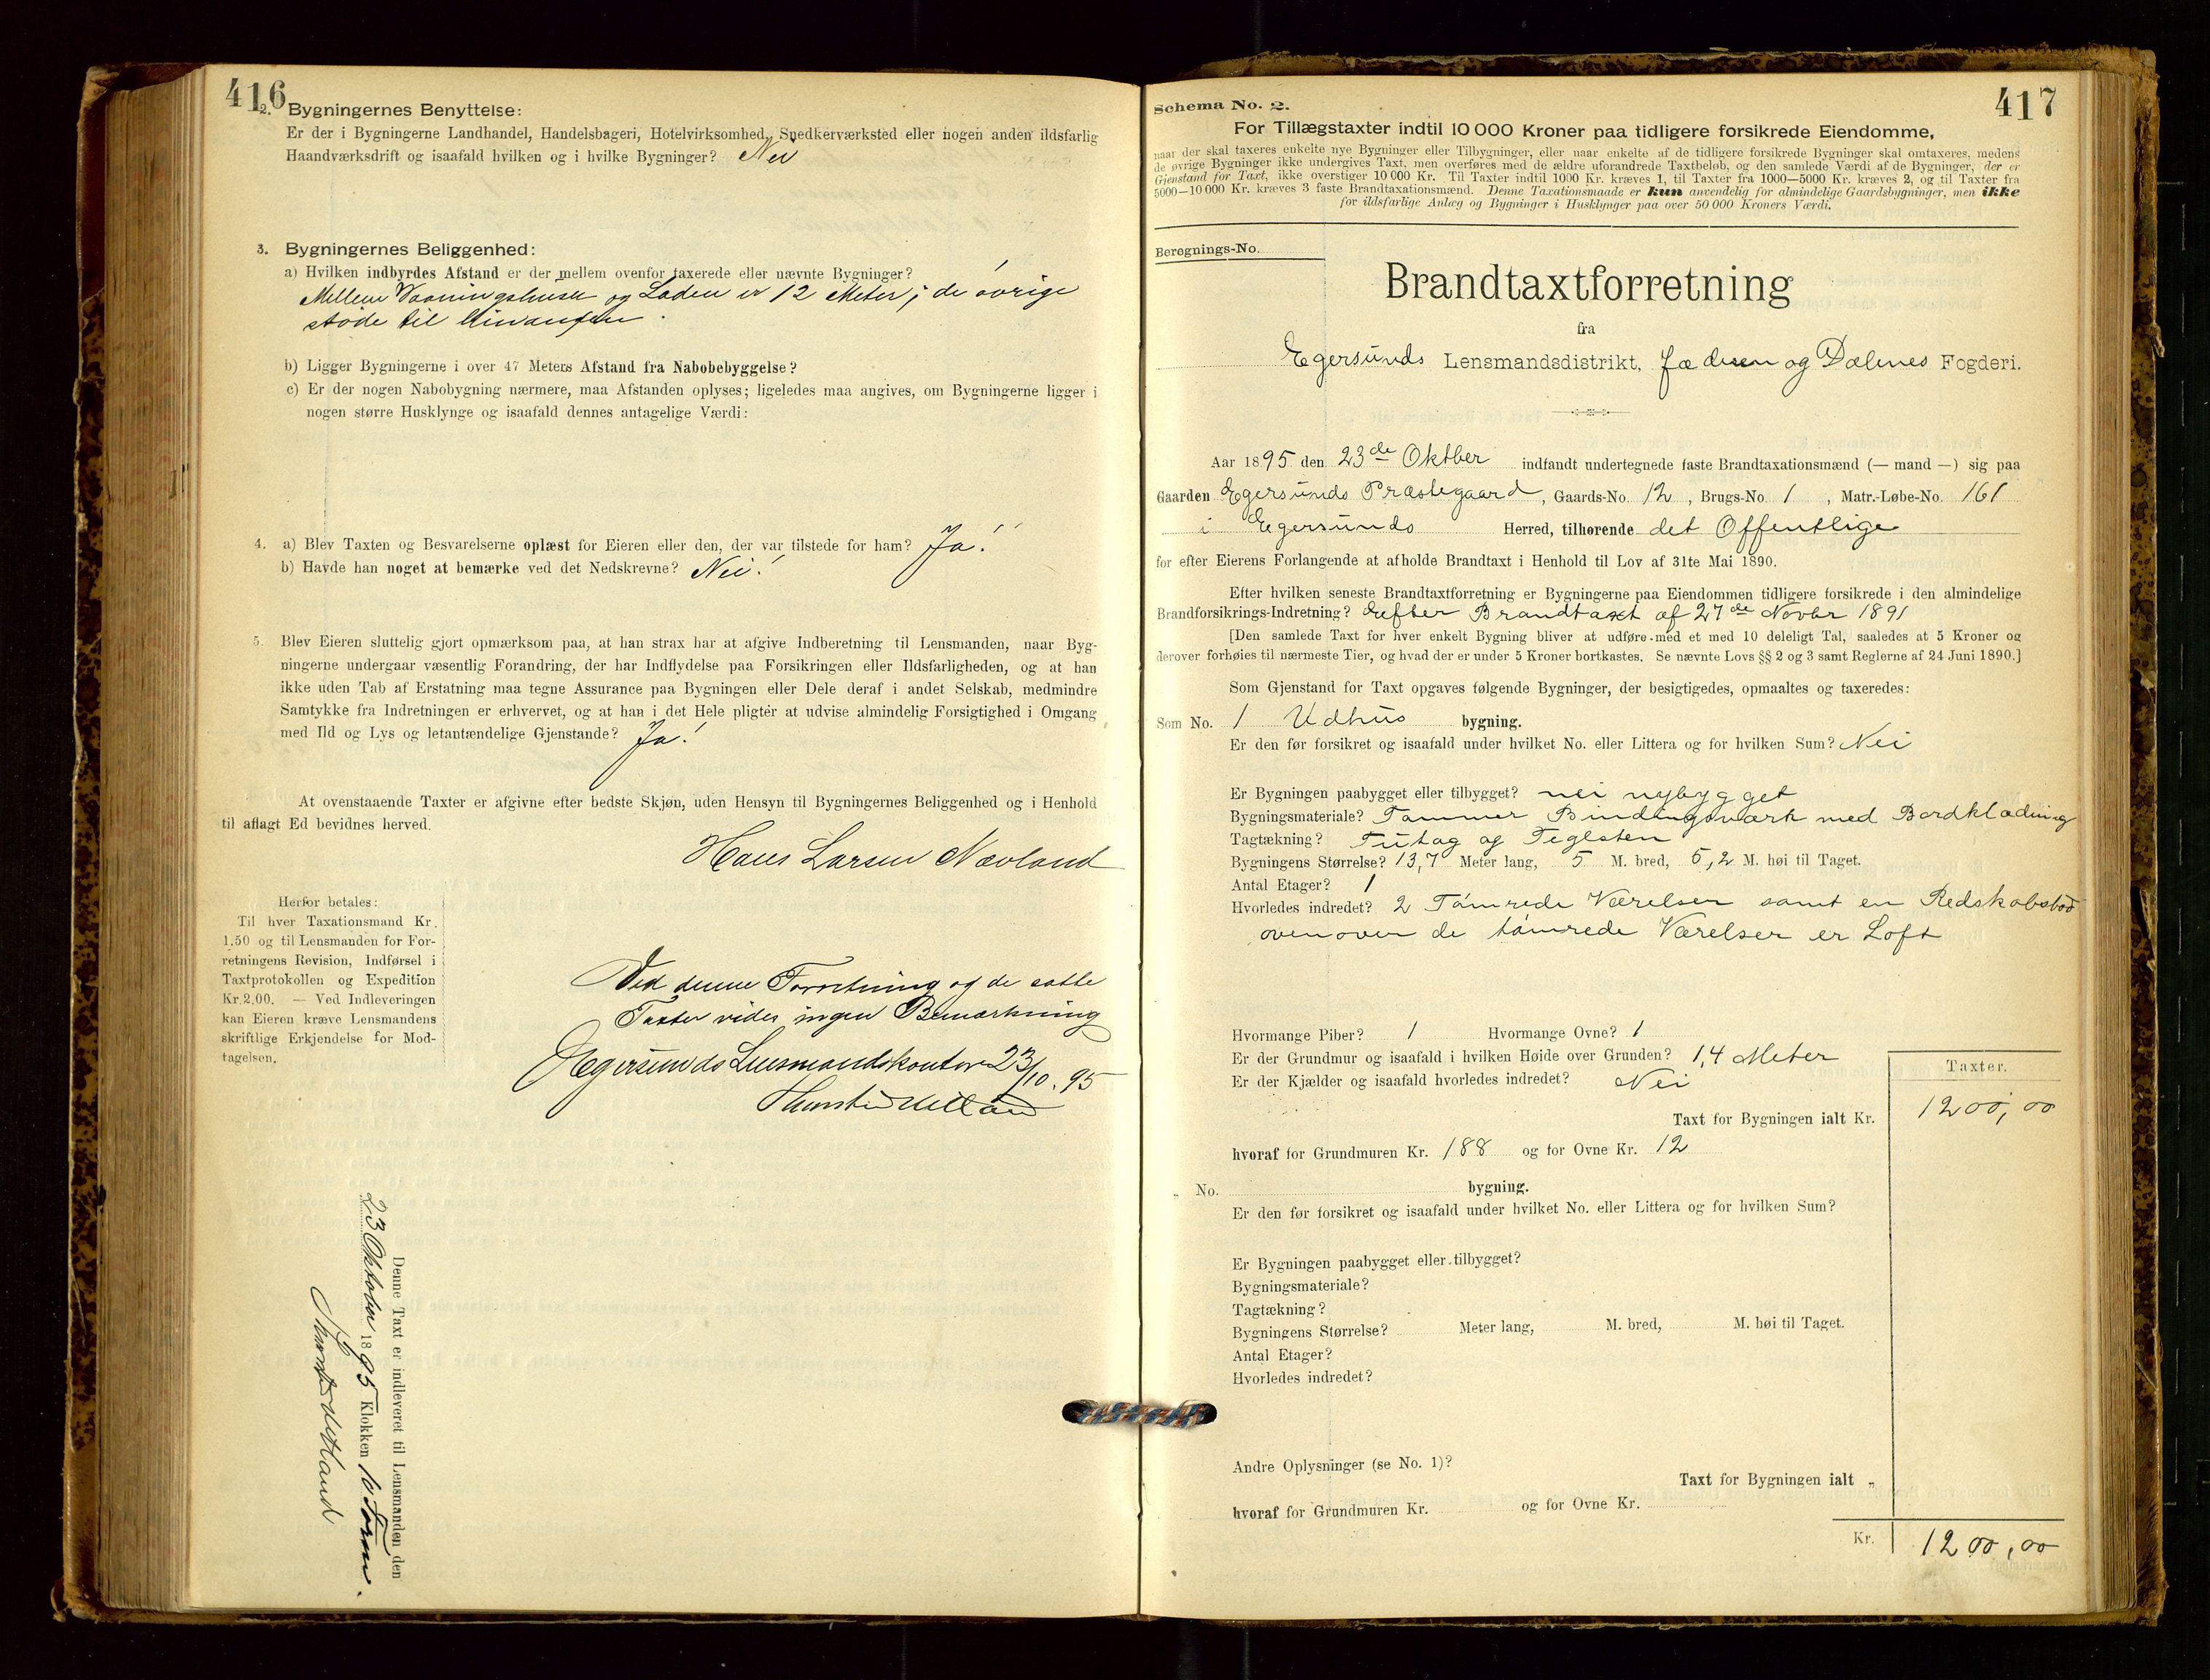 416
2. Bygningernes Benyttelse:
Er der i Bygningerne Landhandel, Handelsbageri, Hotelvirksomhed, Snedkerværksted eller nogen anden ildsfarlig
Haandværksdrift og isaafald hvilken og i hvilke Bygninger? Nei
3. Bygningernes Beliggenhed:
a) Hvilken indbyrdes Afstand er der mellem ovenfor taxerede eller nævnte Bygninger?
Mellem Vaaningshuset og Laden er 12 Meter; de øvrige
støde til hinanden.
b) Ligger Bygningerne i over 47 Meters Afstand fra Nabobebyggelse?
c) Er der nogen Nabobygning nærmere, maa Afstanden oplyses; ligeledes maa angives, om Bygningerne ligger i
nogen større Husklynge og isaafald dennes antagelige Værdi:
4. a) Blev Taxten og Besvarelserne oplæst for Eieren eller den, der var tilstede for ham? Ja!
b) Havde han noget at bemærke ved det Nedskrevne? Nei!
5. Blev Eieren sluttelig gjort opmærksom paa, at han strax har at afgive Indberetning til Lensmanden, naar Byg-
ningerne undergaar væsentlig Forandring, der har Indflydelse paa Forsikringen eller Ildsfarligheden, og at han
ikke uden Tab af Erstatning maa tegne Assurance paa Bygningen eller Dele deraf i andet Selskab, medmindre
Samtykke fra Indretningen er erhvervet, og at han i det Hele pligter at udvise almindelig Forsigtighed i Omgang
med Ild og Lys og letantændelige Gjenstande? Ja!
At ovenstaaende Taxter er afgivne efter bedste Skjøn, uden Hensyn til Bygningernes Beliggenhed og i Henhold
til aflagt Ed bevidnes herved.
Hans Larsen Nævland
Herfor betales:
Til hver Taxationsmand Kr.
1.50 og til Lensmanden for For-
retningens Revision, Indførsel i
Taxtprotokollen og Expedition
Kr. 2.00. — Ved Indleveringen
kan Eieren kræve Lensmandens
skriftlige Erkjendelse for Mod-
tagelsen.
Ved denne Forretning og de satte
Taxter vides ingen Bemærkning
Egersunds Lensmandskontor 23/10. 95
Denne Taxt er indleveret til Lensmanden den
23 Oktober 1895 Klokken 10 Form.
417
Schema No. 2.
For Tillægstaxter indtil 10 000 Kroner paa tidligere forsikrede Eiendomme,
naar der skal taxeres enkelte nye Bygninger eller Tilbygninger, eller naar enkelte af de tidligere forsikrede Bygninger skal omtaxeres, medens
de øvrige Bygninger ikke undergives Taxt, men overføres med de ældre uforandrede Taxtbeløb, og den samlede Værdi af de Bygninger, der er
Gjenstand for Taxt, ikke overstiger 10 000 Kr. Til Taxter indtil 1000 Kr. kræves 1, til Taxter fra 1000—5000 Kr. kræves 2, og til Taxter fra
5000—10 000 Kr. kræves 3 faste Brandtaxationsmænd. Denne Taxationsmaade er kun anvendelig for almindelige Gaardsbygninger, men ikke
for ildsfarlige Anlæg og Bygninger i Husklynger paa over 50 000 Kroners Værdi.
Beregnings-No.
Brandtaxtforretning
fra
Egersunds Lensmandsdistrikt, Jæderen og Dalenes Fogderi.
Aar 1895 den 23de Oktber indfandt undertegnede faste Brandtaxationsmænd (— mand —) sig paa
Gaarden Egersunds Præstegaard, Gaards-No. 12, Brugs-No. 1, Matr.-Løbe-No. 161
i Egersunds Herred, tilhørende det Offentlige
for efter Eierens Forlangende at afholde Brandtaxt i Henhold til Lov af 31te Mai 1890.
Efter hvilken seneste Brandtaxtforretning er Bygningerne paa Eiendommen tidligere forsikrede i den almindelige
Brandforsikrings-Indretning? Eefter Brandtaxt af 27de Novbr 1891
[Den samlede Taxt for hver enkelt Bygning bliver at udføre med et med 10 deleligt Tal, saaledes at 5 Kroner og
derover forhøies til nærmeste Tier, og hvad der er under 5 Kroner bortkastes. Se nævnte Lovs §§ 2 og 3 samt Reglerne af 24 Juni 1890.]
Som Gjenstand for Taxt opgaves følgende Bygninger, der besigtigedes, opmaaltes og taxeredes:
Som No. 1 Udhus bygning.
Er den før forsikret og isaafald under hvilket No. eller Littera og for hvilken Sum? Nei
Er Bygningen paabygget eller tilbygget? nei nybygget
Bygningsmateriale? Tømmer Bindingsværk med Bordklædning
Tagtækning? Tritag og Teglsten
Bygningens Størrelse? 13,7 Meter lang, 5 M. bred, 5,2 M. høi til Taget.
Antal Etager? 1
Hvorledes indredet? 2 Tømrede Værelser samt en Redskabsbod
ovenover de tømrede Værelser er Loft
Hvormange Piber? 1 Hvormange Ovne? 1
Er der Grundmur og isaafald i hvilken Høide over Grunden? 1,4 Meter
Er der Kjælder og isaafald hvorledes indredet? Nei
Taxter.
Taxt for Bygningen ialt Kr. 1200,00
hvoraf for Grundmuren Kr. 188 og for Ovne Kr. 12
„ No. bygning.
Er den før forsikret og isaafald under hvilket No. eller Littera og for hvilken Sum?
Er Bygningen paabygget eller tilbygget?
Bygningsmateriale?
Tagtækning?
Bygningens Størrelse? Meter lang, M. bred, M. høi til Taget.
Antal Etager?
Hvorledes indredet?
Andre Oplysninger (se No. 1)?
Taxt for Bygningen ialt „
hvoraf for Grundmuren Kr. og for Ovne Kr.
Kr. 1200,00